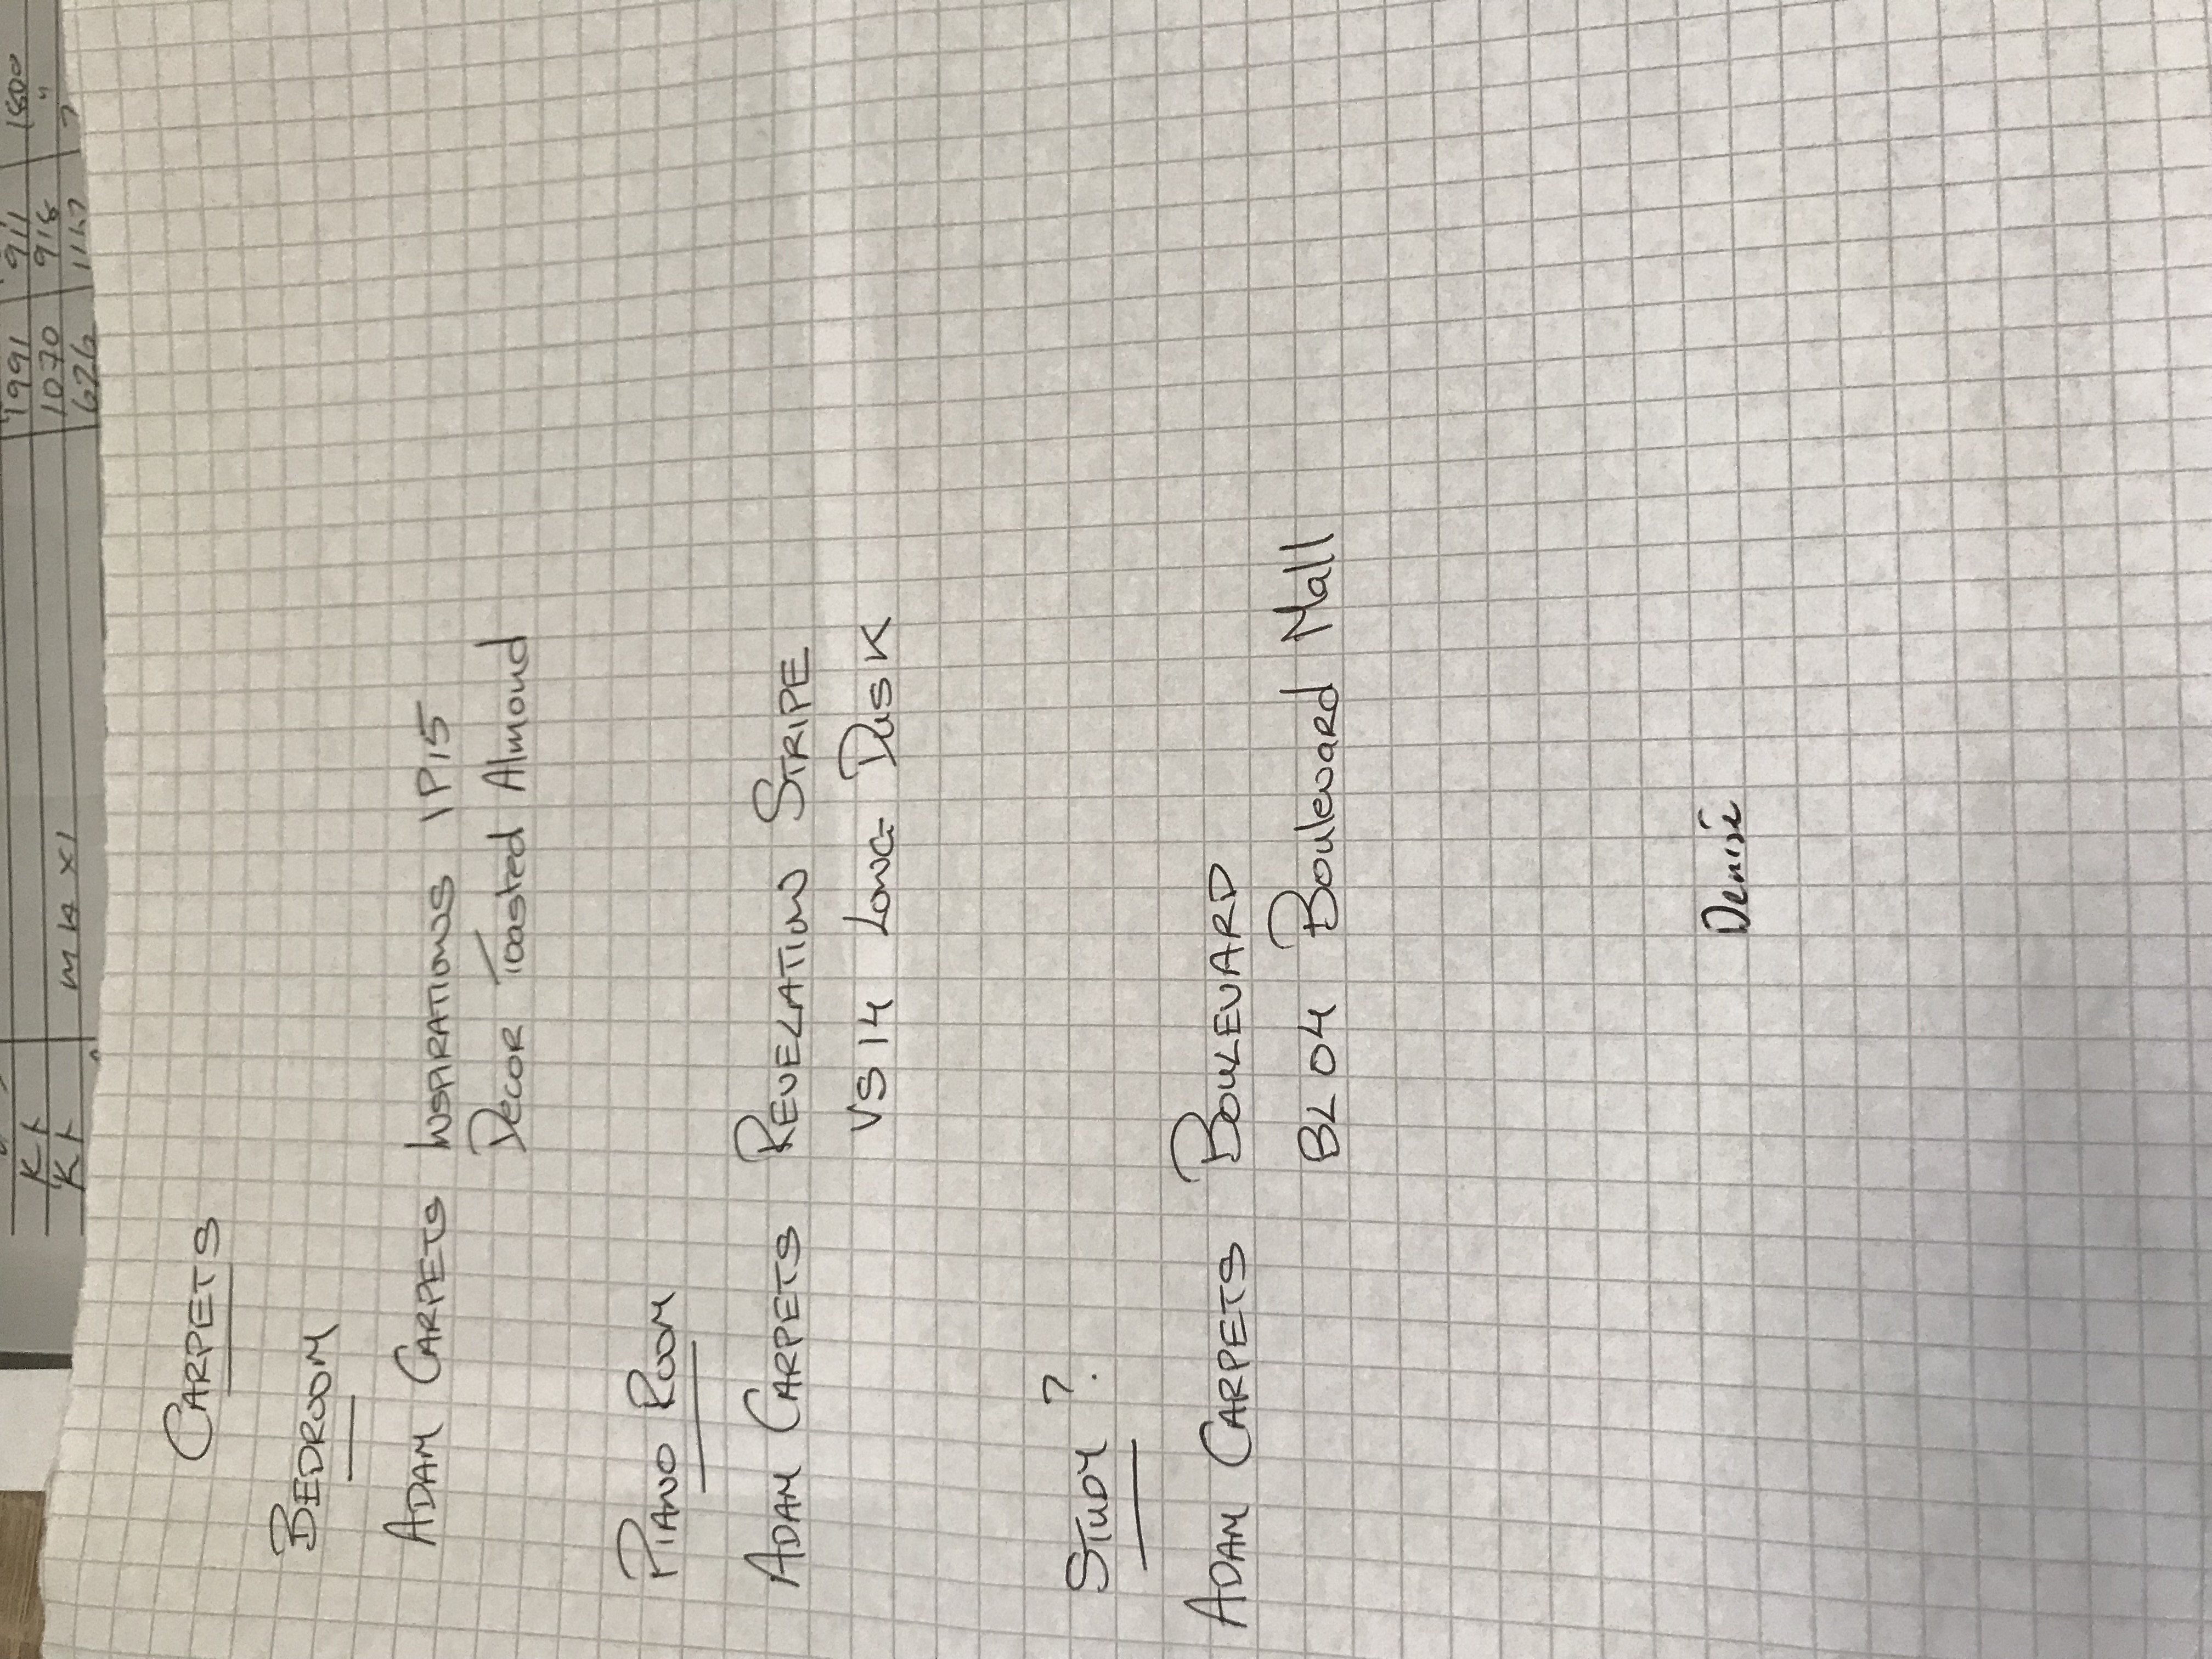 1991 911 1800
Kt 1070 916 "
Kt M4 X1 626 1117 ?
CARPETS
BEDROOM
ADAM CARPETS INSPIRATIONS IP15
DECOR Toasted Almond
PIANO ROOM
ADAM CARPETS REVELATION STRIPE
VS14 LONG DUSK
STUDY ?.
ADAM CARPETS BOULEVARD
BL04 Boulevard Mall
Denise